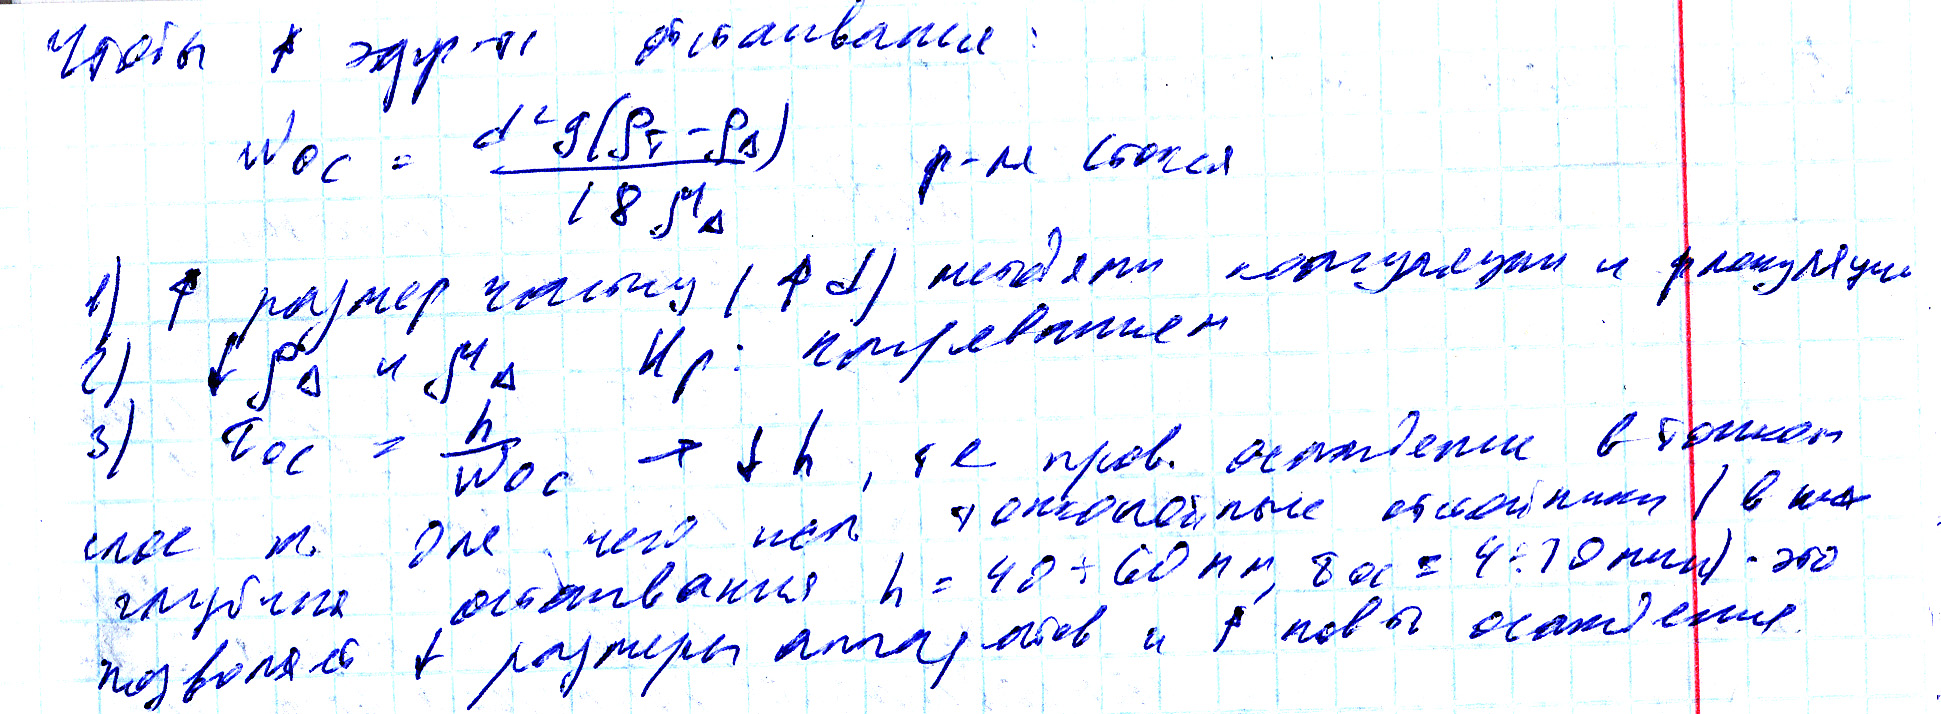 Чтобы ↑ эфф-ть отстаивания:
Wос = d²g(ρт - ρΔ) / 18 μΔ   ф-ла Стокса
1) ↑ размер частиц (↑ d) методами коагуляции и флокуляции
2) ↓ ρΔ и μΔ   Нр: нагреванием
3) τос = h / Wос → ↓ h, те пров. осаждение в тонком
слое для чего исп тонкослойные отстойники (в них
глубина отстаивания h = 40 ÷ 60 мм, τос = 4 ÷ 10 мин) - это
позволяет ↓ размеры аппаратов и ↑ осаждения.